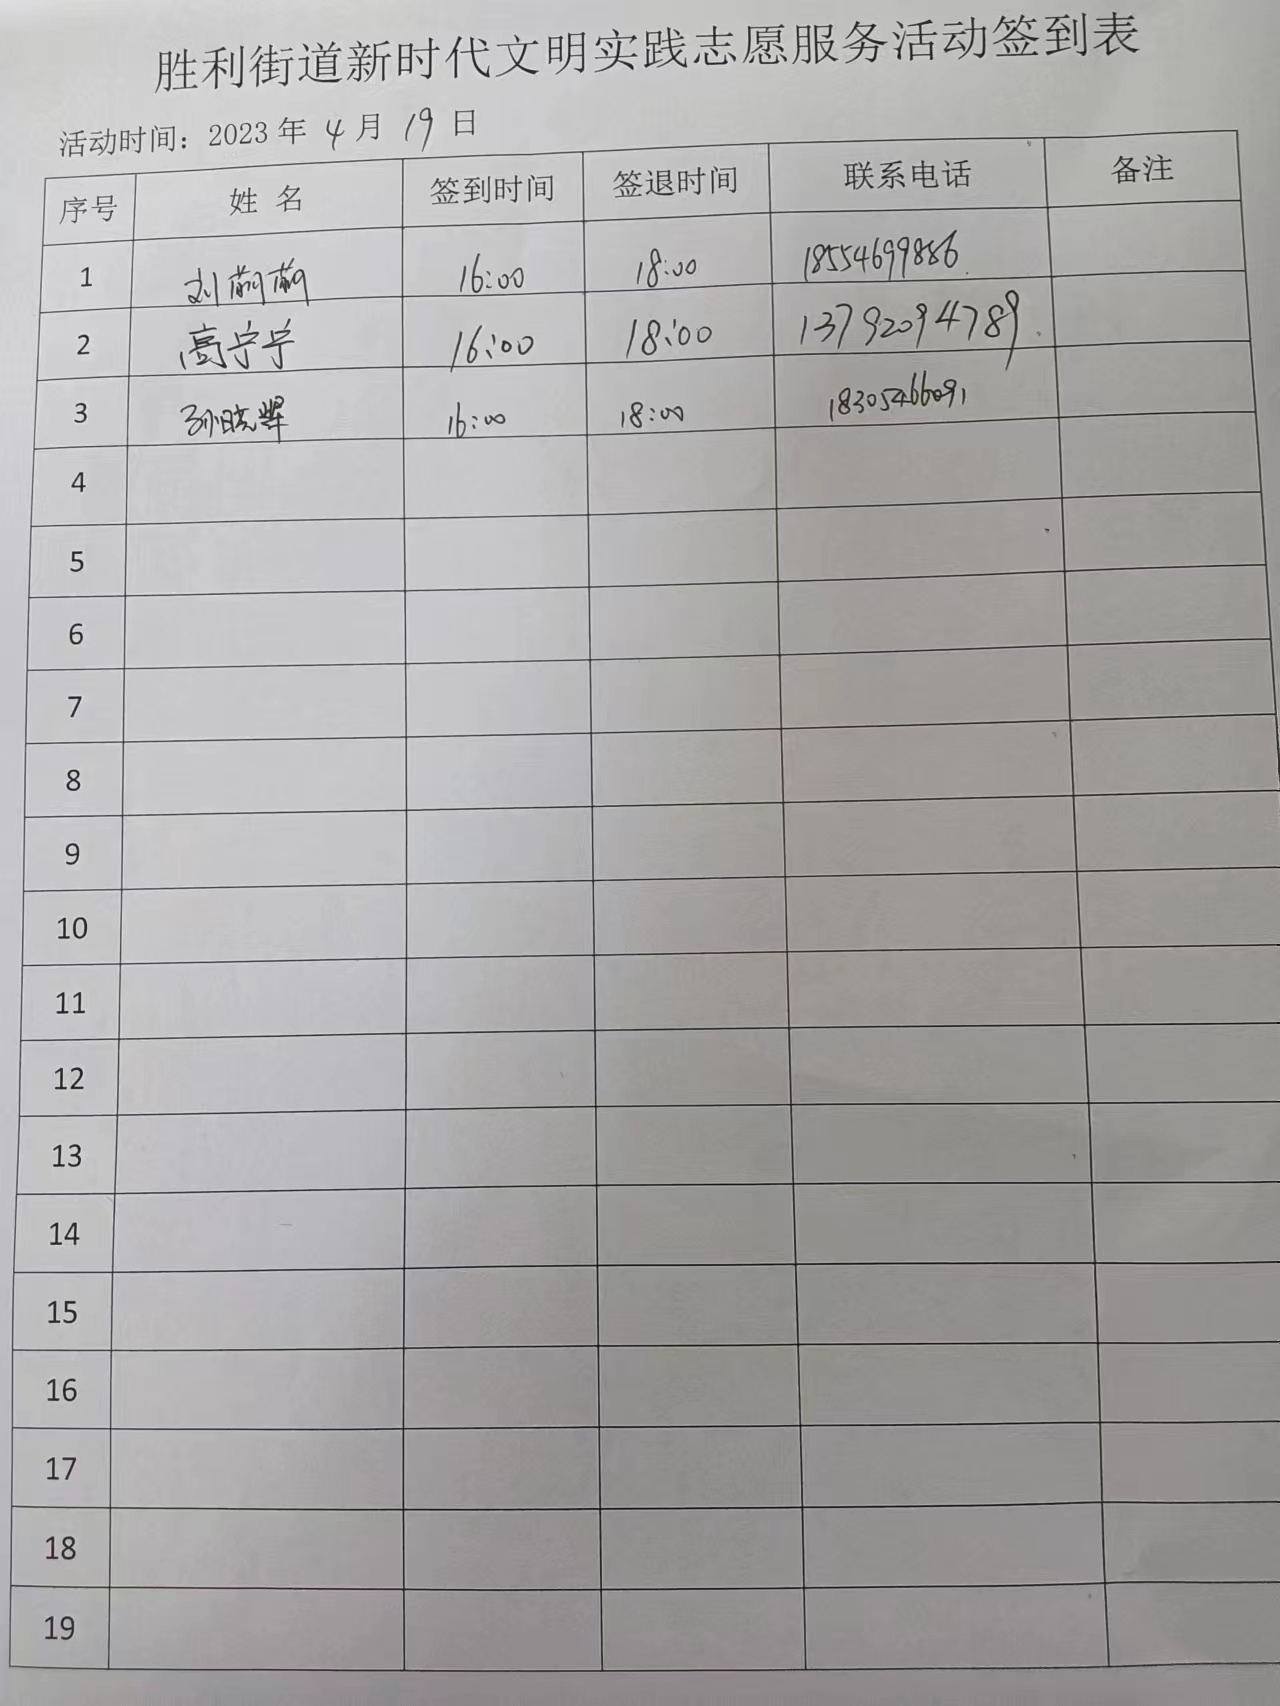 胜利街道新时代文明实践志愿服务活动签到表
活动时间：2023 年 4 月 19 日
序号 姓 名 签到时间 签退时间 联系电话 备注
1 刘莉莉 16:00 18:00 18554699886
2 高宁宁 16:00 18:00 13792094789
3 孙晓辉 16:00 18:00 18305466091
4
5
6
7
8
9
10
11
12
13
14
15
16
17
18
19